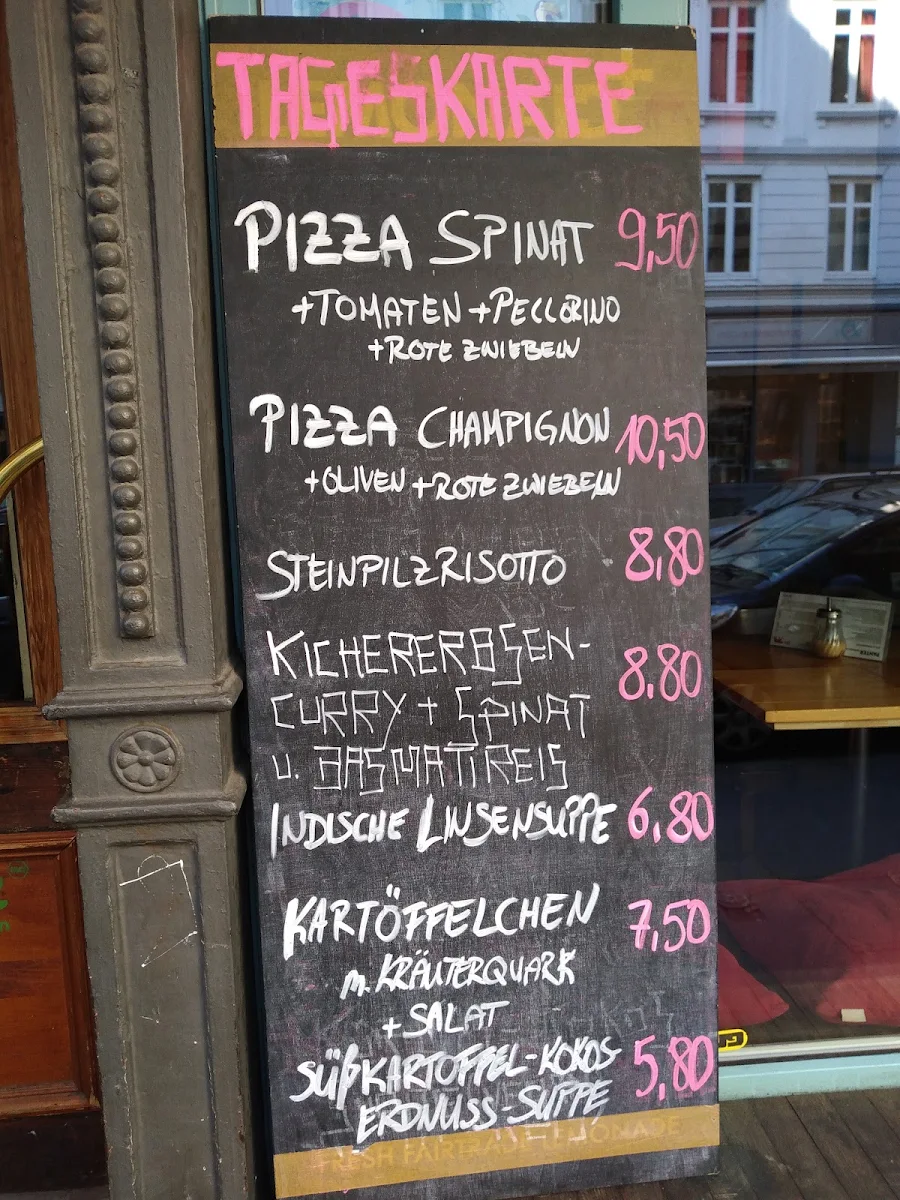 TAGESKARTE
PIZZA SPINAT 9,50
+TOMATEN +PECCORINO
+ROTE ZWIEBELN
PIZZA CHAMPIGNON 10,50
+OLIVEN +ROTE ZWIEBELN
STEINPILZRISOTTO 8,80
KICHERERBSEN-
CURRY + SPINAT 8,80
u. BASMATIREIS
INDISCHE LINSENSUPPE 6,80
KARTÖFFELCHEN 7,50
m. KRÄUTERQUARK
+SALAT
SÜßKARTOFFEL-KOKOS 5,80
ERDNUSS-SUPPE
FRESH FAIRTRADE LEMONADE